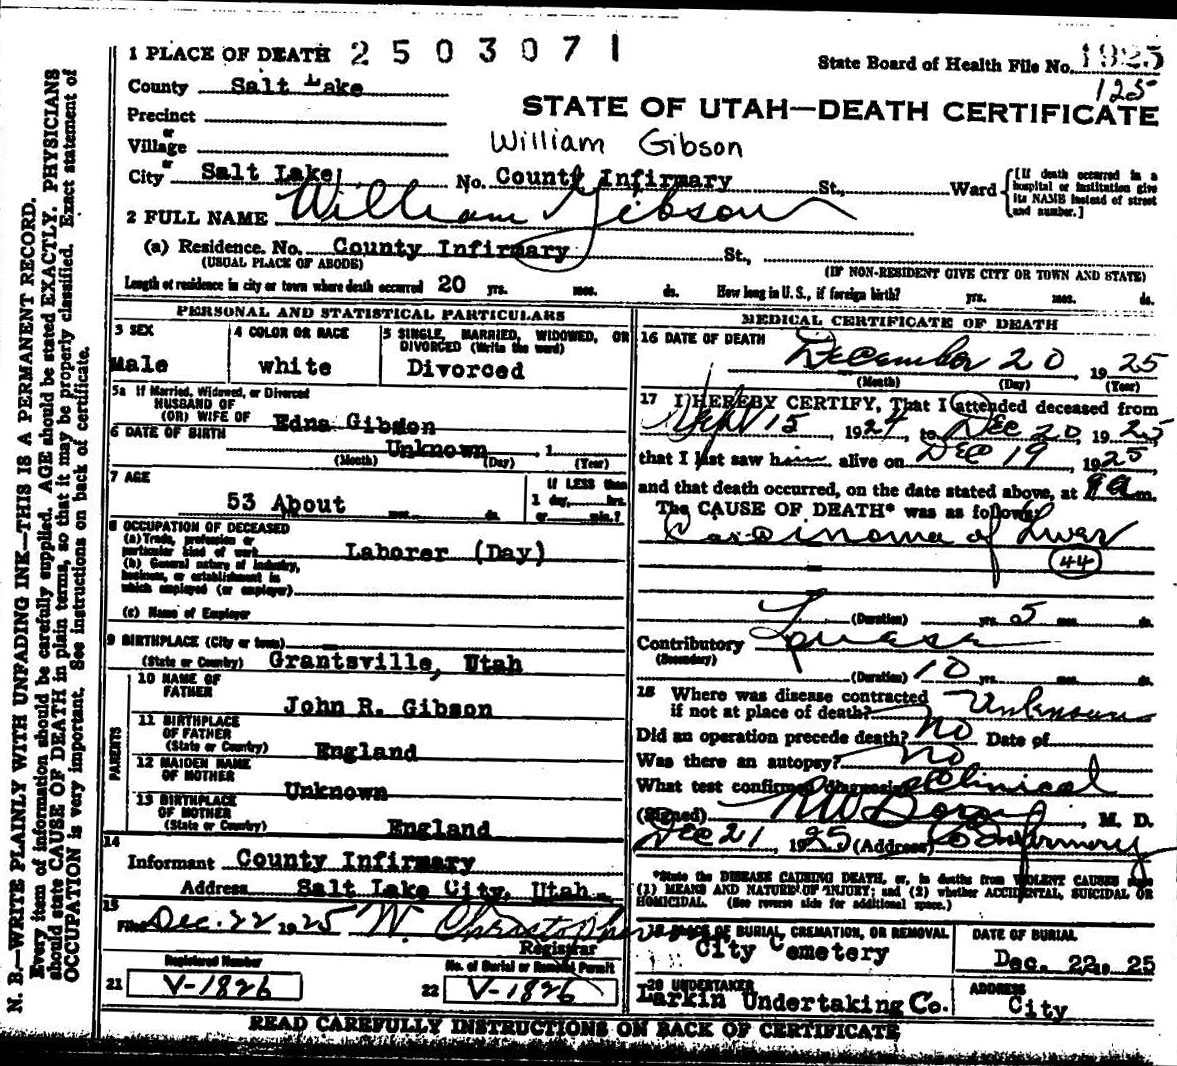 1 PLACE OF DEATH 2503071
State Board of Health File No. 1925
125
County Salt Lake
STATE OF UTAH—DEATH CERTIFICATE
Precinct
or
Village
William Gibson
or
City Salt Lake No. County Infirmary St., Ward
[If death occurred in a hospital or institution give its NAME instead of street and number.]
2 FULL NAME William Gibson
(a) Residence. No. County Infirmary St.,
(USUAL PLACE OF ABODE) (IF NON-RESIDENT GIVE CITY OR TOWN AND STATE)
Length of residence in city or town where death occurred 20 yrs. mos. ds. How long in U. S., if foreign birth? yrs. mos. ds.
PERSONAL AND STATISTICAL PARTICULARS
3 SEX
Male
4 COLOR OR RACE
white
5 SINGLE, MARRIED, WIDOWED, OR
DIVORCED (Write the word)
Divorced
5a If Married, Widowed, or Divorced
HUSBAND OF
(OR) WIFE OF Edna Gibson
6 DATE OF BIRTH Unknown , 1
(Month) (Day) (Year)
7 AGE
53 About mos. ds.
If LESS than
1 day, hrs.
or min.?
8 OCCUPATION OF DECEASED
(a) Trade, profession or
particular kind of work Laborer (Day)
(b) General nature of industry,
business, or establishment in
which employed (or employer)
(c) Name of Employer
9 BIRTHPLACE (City or town)
(State or Country) Grantsville, Utah
PARENTS
10 NAME OF
FATHER John R. Gibson
11 BIRTHPLACE
OF FATHER
(State or Country) England
12 MAIDEN NAME
OF MOTHER Unknown
13 BIRTHPLACE
OF MOTHER
(State or Country) England
14
Informant County Infirmary
Address Salt Lake City, Utah
15
Filed Dec. 22 1925 W. Christopherson
Registrar
Registered Number
21 V-1826
No. of Burial or Removal Permit
22 V-1826
MEDICAL CERTIFICATE OF DEATH
16 DATE OF DEATH
December 20, 1925
(Month) (Day) (Year)
17 I HEREBY CERTIFY, That I attended deceased from
Sept 15, 1924, to Dec 20, 1925
that I last saw him alive on Dec 19, 1925,
and that death occurred, on the date stated above, at 9 a m.
The CAUSE OF DEATH* was as follows:
Carcinoma of Liver
44
(Duration) yrs. 5 mos. ds.
Contributory
(Secondary)
(Duration) 10 yrs. mos. ds.
18 Where was disease contracted
if not at place of death? Unknown
Did an operation precede death? No Date of
Was there an autopsy? No
What test confirmed diagnosis? Clinical
(Signed) , M. D.
Dec 21, 1925 (Address) Co Infirmary
*State the DISEASE CAUSING DEATH, or, in deaths from VIOLENT CAUSES state
(1) MEANS AND NATURE OF INJURY; and (2) whether ACCIDENTAL, SUICIDAL OR
HOMICIDAL. (See reverse side for additional space.)
19 PLACE OF BURIAL, CREMATION, OR REMOVAL
City Cemetery
DATE OF BURIAL
Dec. 22, 25
20 UNDERTAKER
Larkin Undertaking Co.
ADDRESS
City
READ CAREFULLY INSTRUCTIONS ON BACK OF CERTIFICATE
N. B.—WRITE PLAINLY WITH UNFADING INK—THIS IS A PERMANENT RECORD.
Every item of information should be carefully supplied. AGE should be stated EXACTLY. PHYSICIANS
should state CAUSE OF DEATH in plain terms, so that it may be properly classified. Exact statement of
OCCUPATION is very important. See instructions on back of certificate.